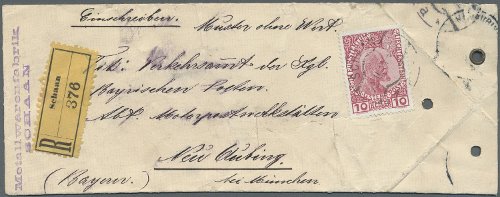 Einschreiben. Muster ohne Wert.
Metallwarenfabrik
SCHAAN
R
Schaan
376
Verkehrsamt der Kgl.
Bayrischen Posten
Abt. Motorpostwerkstätten
Neu Aubing
(Bayern.) bei München
10 10